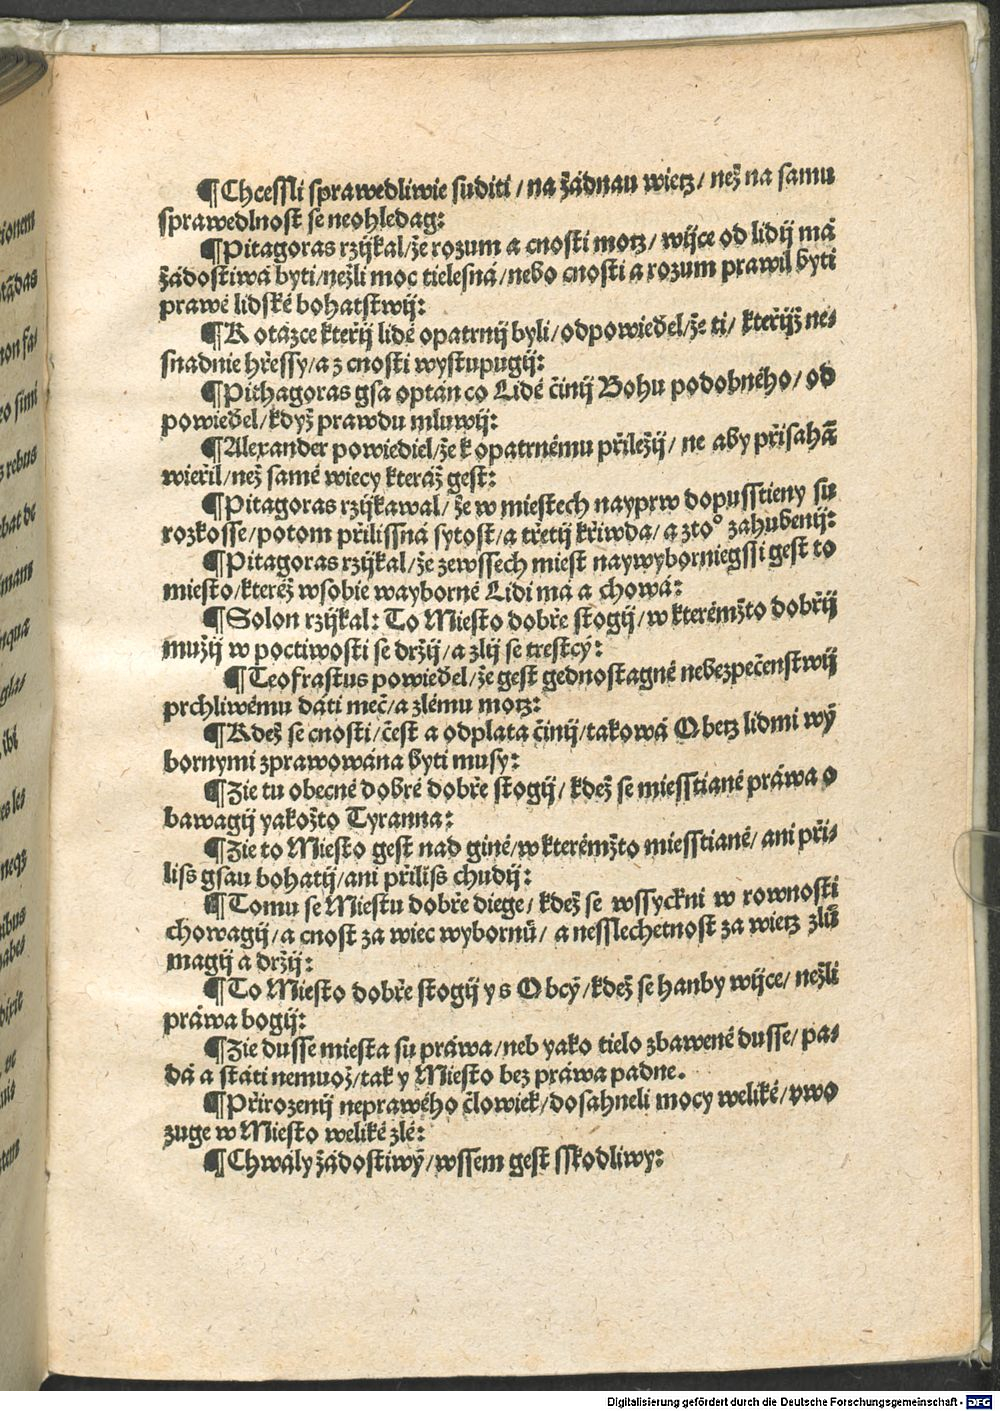 ¶Chcessli sprawedliwie suditi / na žádnau wietz / než na samu
sprawedlnost se neohledag:
¶Pitagoras rzijkal/že rozum a cnosti motz/ wijce od lidij má
žádostiwá byti/nežli moc tielesná/nebo cnosti a rozum prawil byti
prawé lidské bohatstwij:
¶K otázce kteřij lidé opatrnij byli/odpowieděl/že ti/ kteřijž ne⸗
snadnie hřessy/a z cnosti wystupugij:
¶Pithagoras gsa optán co Lidé činij Bohu podobného/ od
powieděl/když prawdu mluwij:
¶Alexander powiediel/že k opatrnému přiležij/ ne aby přisahā
wieřil/než samé wiecy kteráž gest:
¶Pitagoras rzijkawal/ že w miestech nayprw dopusstieny su
rozkosse/potom přilissná sytost/a třetij křiwda/a zto° zahubenij:
¶Pitagoras rzijkal/že zewssech miest naywyborniegssi gest to
miesto/kteréž wsobie wayborné Lidi má a chowá:
¶Solon rzijkal: To Miesto dobře stogij/w kterémžto dobřij
mužij w poctiwosti se držij/a zlij se trestcý:
¶Teofrastus powieděl/že gest gednostagné nebezpečenstwij
prchliwému dáti meč/a zlému motz:
¶Kdež se cnosti/čest a odplata činij/takowá Obetz lidmi wý
bornymi zprawowána byti musy:
¶Zie tu obecné dobré dobře stogij/ kdež se miesstiané práwa o
bawagij yakožto Tyranna:
¶Zie to Miesto gest nad giné/w kterémžto miesstiané/ ani při⸗
liss gsau bohatij/ani příliss chudij:
¶Tomu se Miestu dobře diege/ kdež se wssyckni w rownosti
chowagij/a cnost za wiec wybornú/ a nesslechetnost za wietz zlú
magij a držij:
¶To Miesto dobře stogij y s Obcý/kdež se hanby wijce/ nežli
práwa bogij:
¶Zie dusse miesta su práwa/neb yako tielo zbawené dusse/ pa⸗
dá a státi nemuož/tak y Miesto bez práwa padne.
¶Přirozenij neprawého člowiek/dosahneli mocy weliké/vwo
zuge w Miesto weliké zlé:
¶Chwály žádostiwý/wssem gest sskodliwy:
ionem
tādas
non fa⸗
eo simi
rebus
bat de
imans
inquā
glas⸗
ibi
es les
neqz
ibus
abes⸗
dixit
et
nis
tem
Digitalisierung gefördert durch die Deutsche Forschungsgemeinschaft - DFG